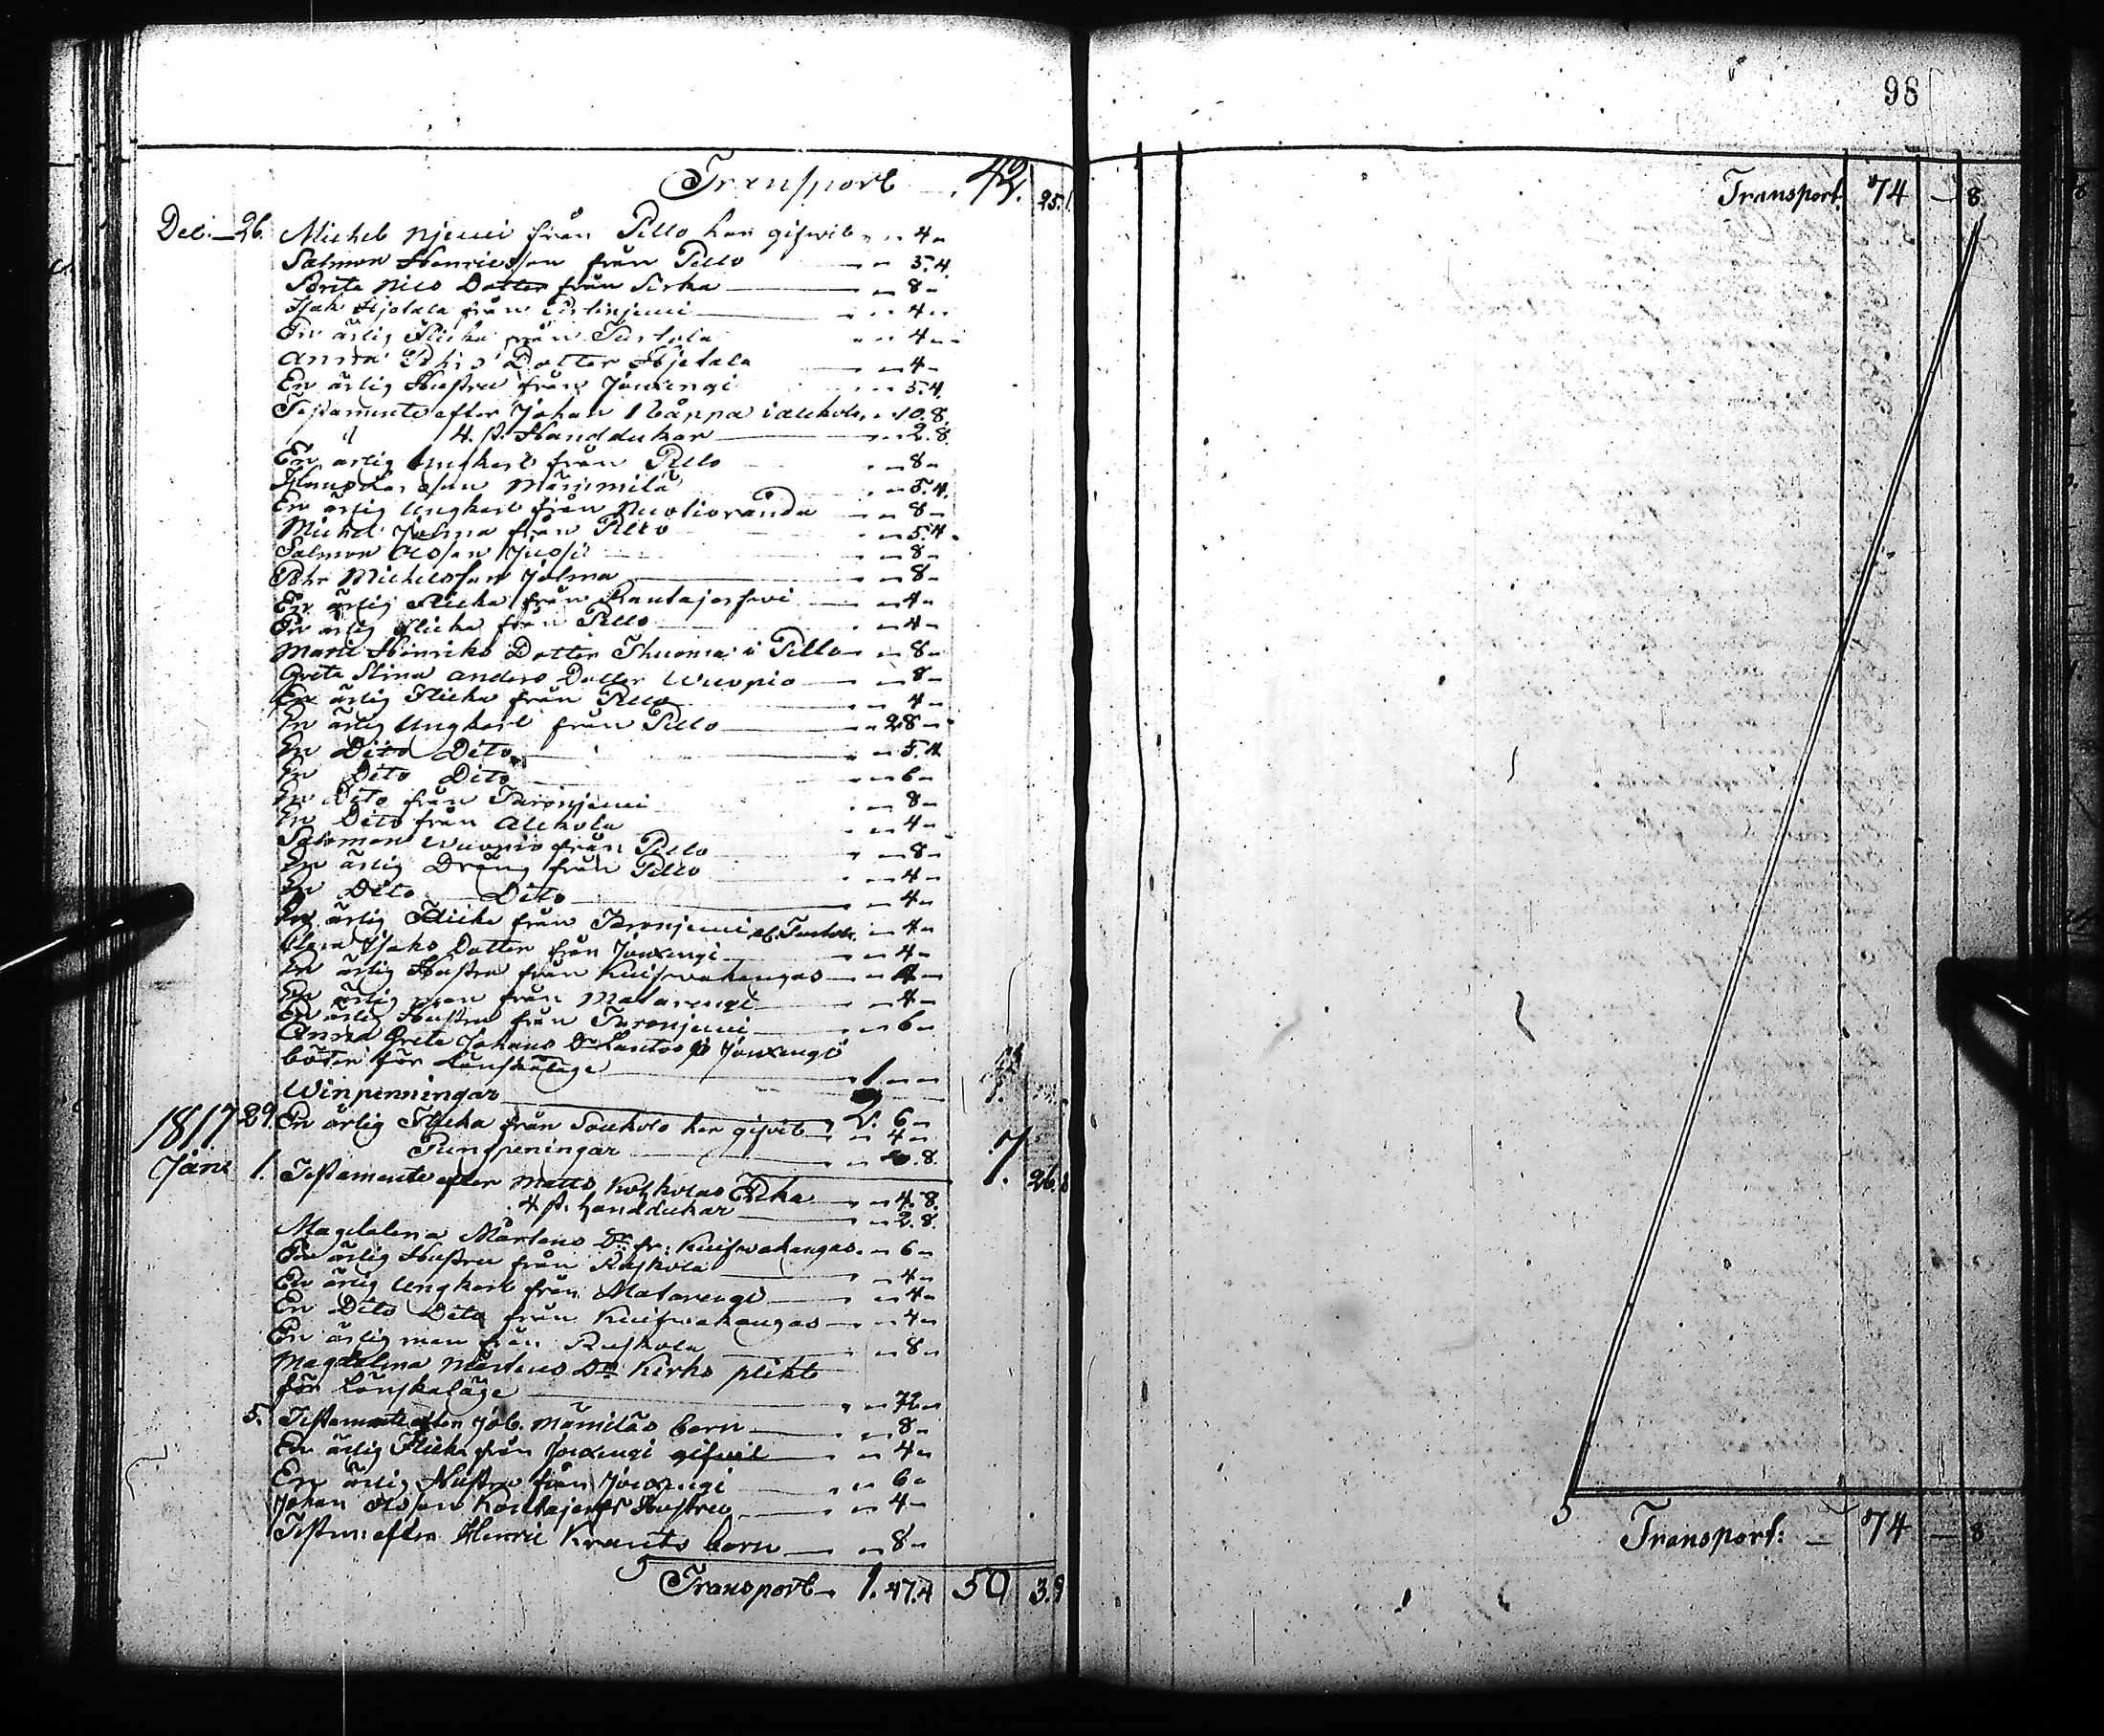 98
Transport 42. 25.1.
Dec: 26. Michel Njemi från Pello har gifwit 4
Salmon Henricsson från Pello 5.4.
Brita Nils Dotter från Sirka 8
Isak Hjetala från 4
En ärlig Flicka från Turtola 4
Anna Phrs Dotter Hjetala 4
En ärlig Hustru från Jouxengi 5.4.
Testamente efter Johan i Alckola 10.8.
4. st. Handdukar 2.8.
En ärlig Ungkarl från Pello 8
5.4.
En ärlig Ungkarl från Muotioranda 8
Michel Jolma från Pello 5.4.
Salmon Olsson 8
Pehr Michelsson Jolma 8
En ärlig Flicka från Rautajerfwi 4
En ärlig Flicka från Pello 4
Maria Henriks Dotter Thuoma i Pello 8
Greta Stina Anders Dotter Wuopio 8
En ärlig Flicka från Pello 4
En ärlig Ungkarl från Pello 28
En Dito Dito 5.4
En Dito Dito 6
En Dito från Turonjemi 8
En Dito från Alckola 4
Salomon Wuopio från Pello 8
En ärlig Dräng från Pello 4
En Dito Dito 4
En ärlig Flicka från Turonjemi 4
Isaks Dotter från Jouxengi 4
En ärlig Hustru från Kuifwakangas 4
En ärlig man från Matarengi 4
En ärlig Hustru från Turonjemi 6
Anna Greta Johans Dr Jouxengi
böter för Lönskaläge 1
Winpenningar 2. 6
1817 29. En ärlig Flicka från har gifvit 4
Pungpeningar 8. 7
Janr 1. Testamente efter Matts Kolkolas 4.8. 26.
4 st. handdukar 2.8.
Magdalena Mårtens Dr fr: Kuifwakangas 6
En ärlig Hustru från Ruskola 4
En ärlig Ungkarl från Matarengi 4
En Dito Dito från Kuifwakangas 4
En ärlig man från Ruskola 8
Magdalena Mårtens Dr Kirko plikt
för Lönskaläge 72
5. Testamente efter Joh. barn 8
En ärlig Flicka från Jouxengi gifvit 4
En ärlig Hustru från Jouxengi 6
Johan Olsson Hustru 4
Testm: efter Henric Krants barn 8
Transport 1. 47.4 50 3.9
Transport. 74 — 8.
Transport: — 74 — 8